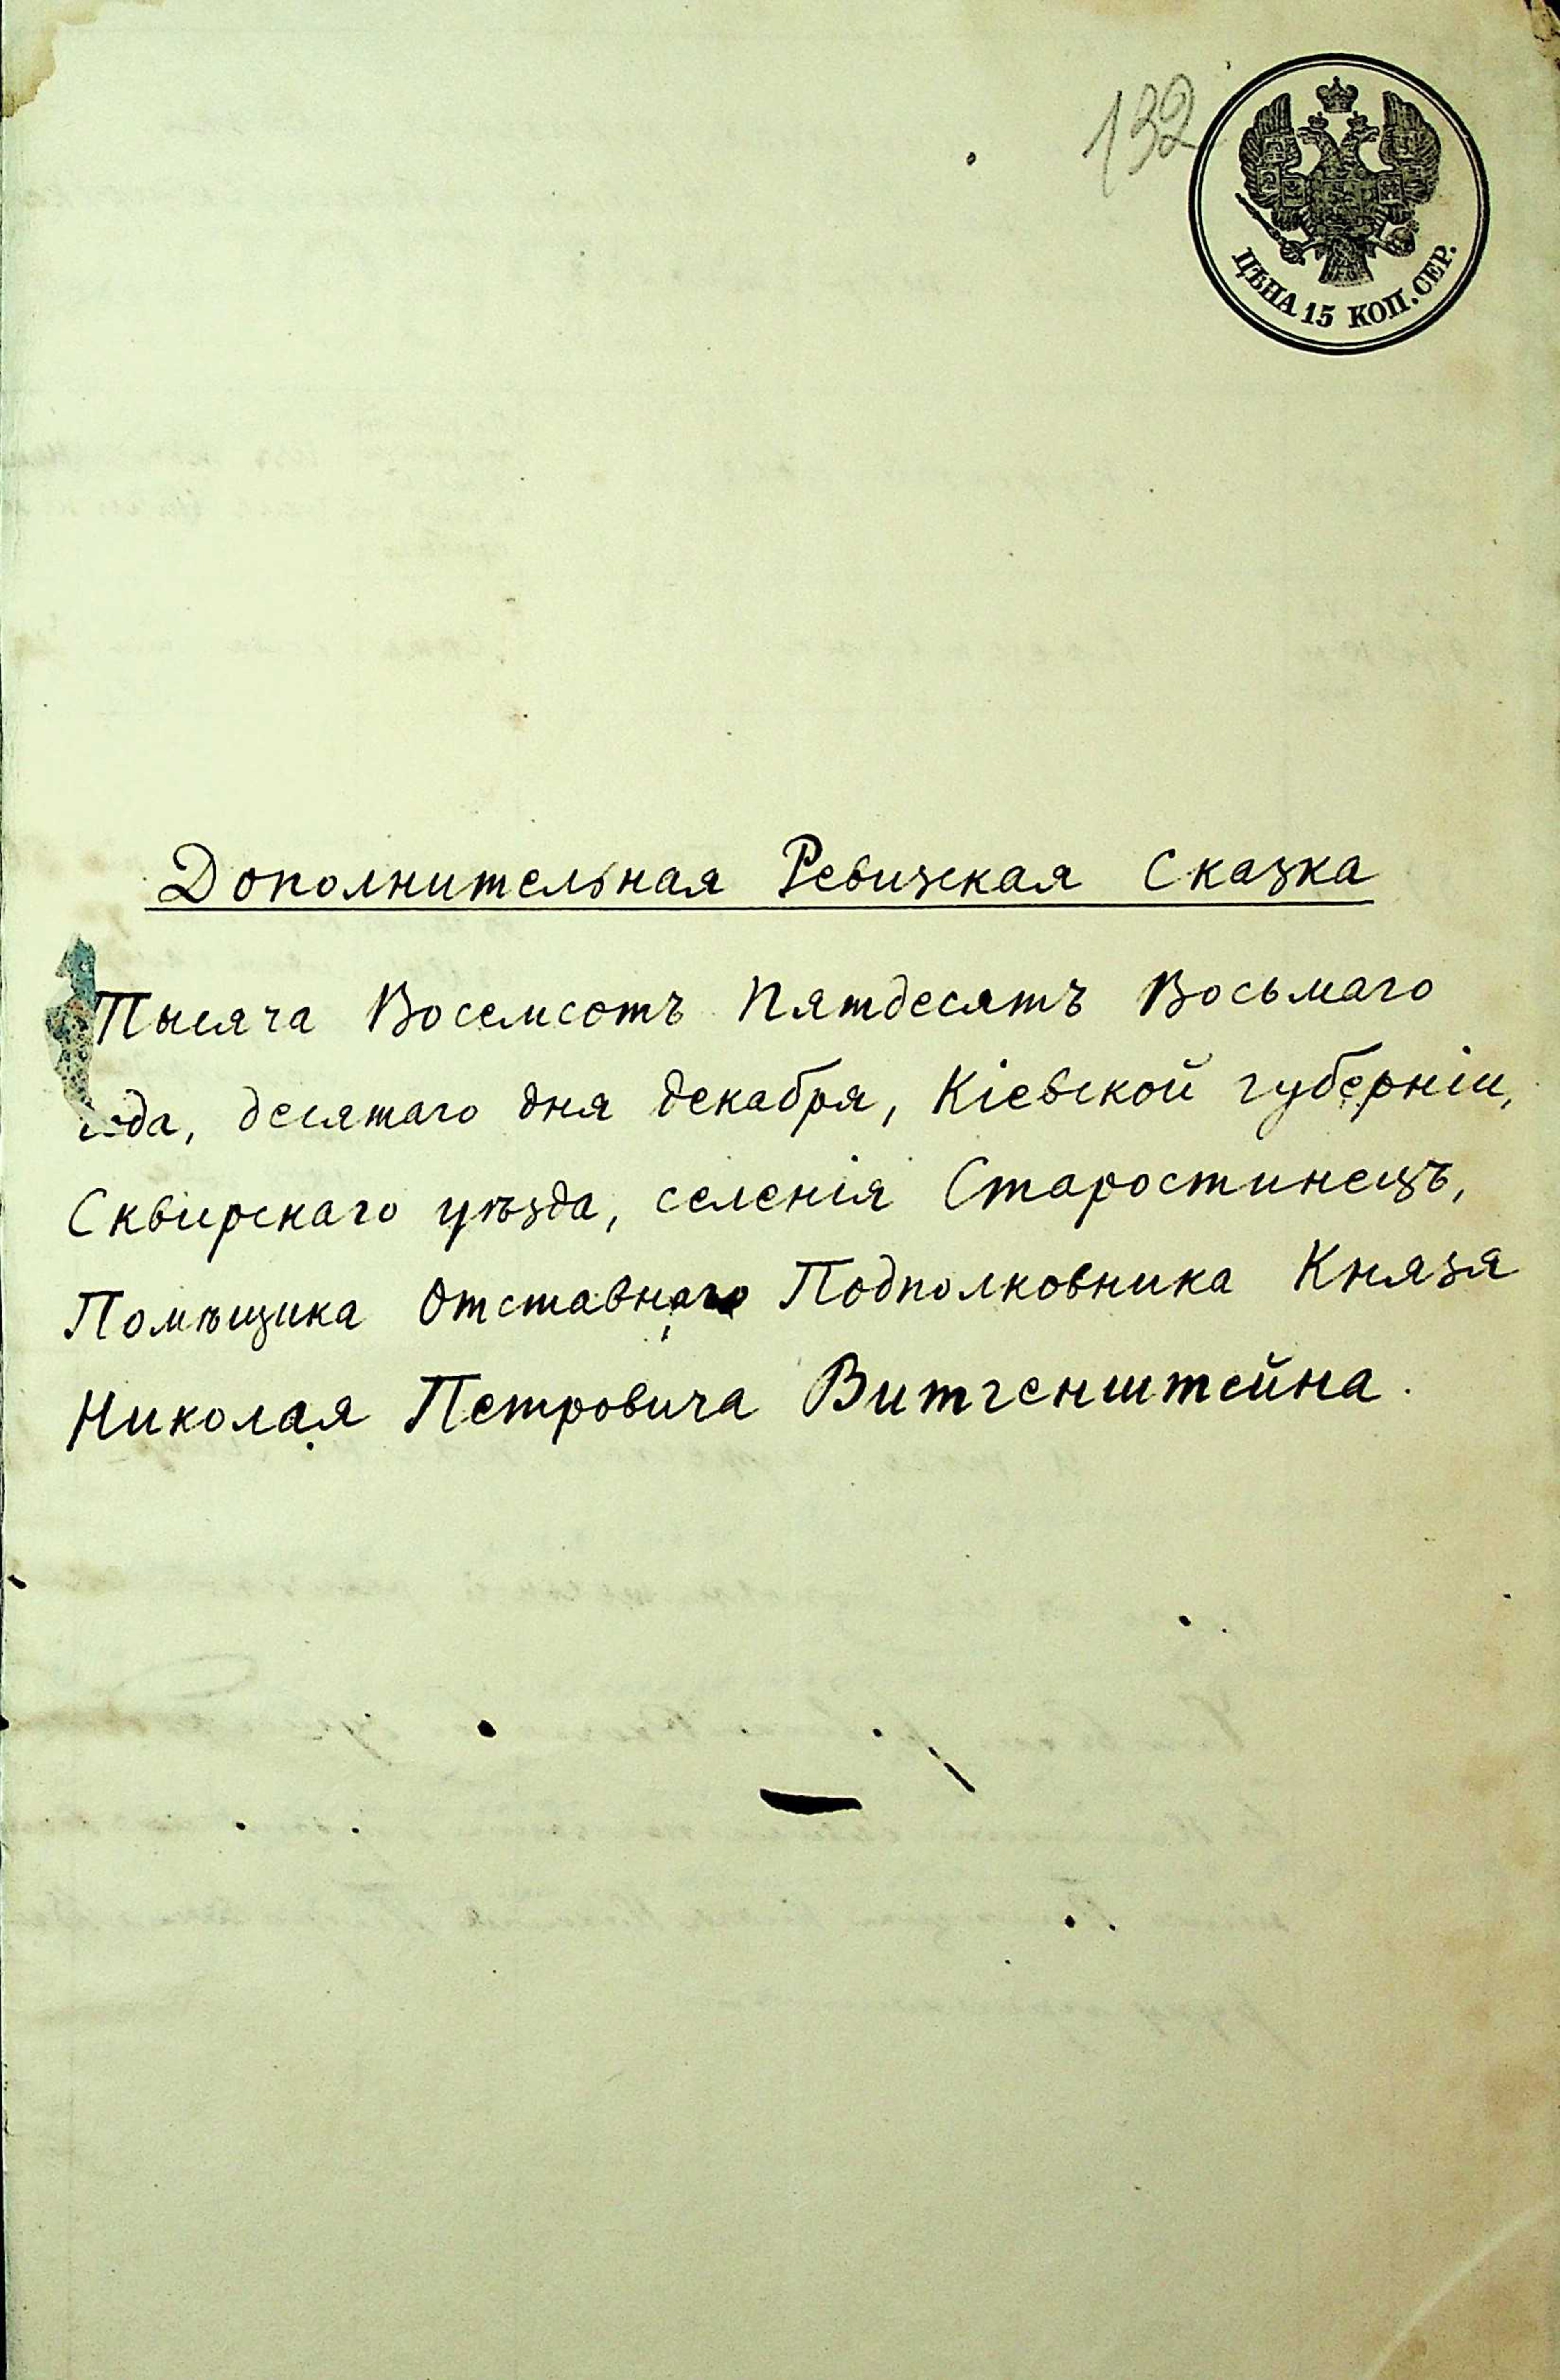 132
ЦѢНА 15 КОП. СЕР.
Дополнительная Ревизская Сказка
Тысяча Восемсотъ Пятдесятъ Восьмаго
года, десятаго дня декабря, Кіевской губерніи,
Сквирскаго уѣзда, селенія Старостинецъ,
Помѣщика Отставнаго Подполковника Князя
Николая Петровича Витгенштейна.